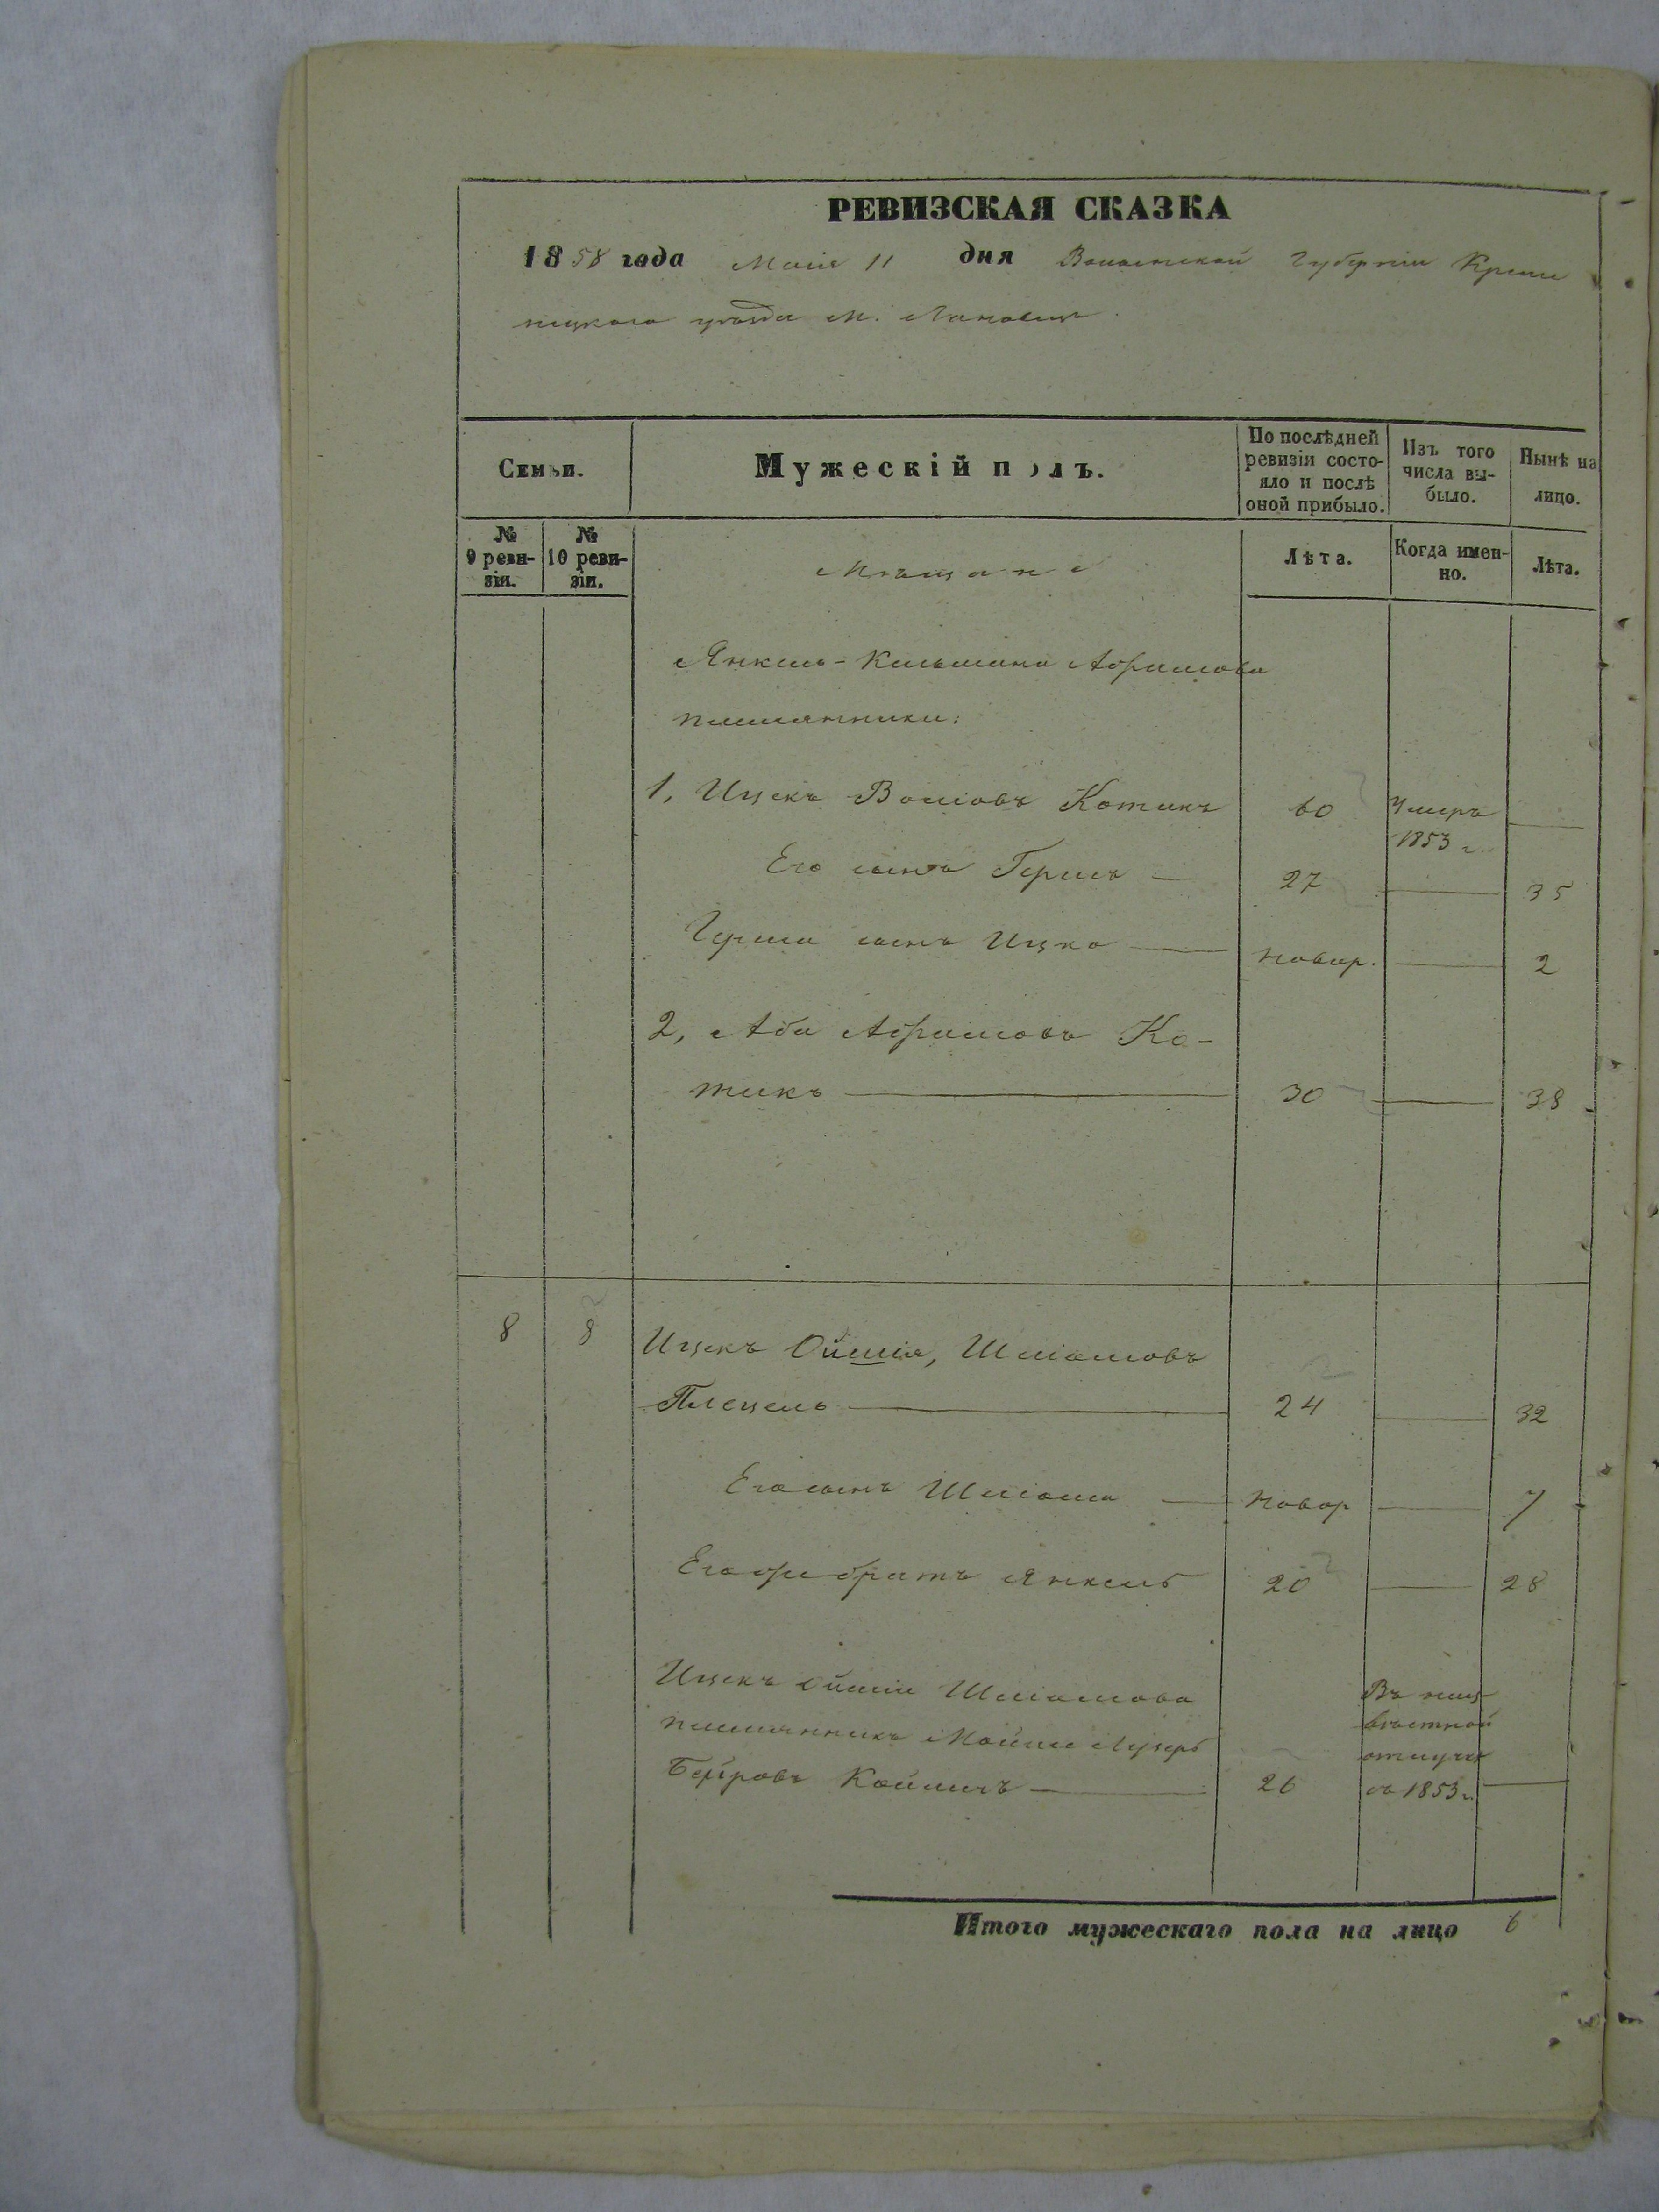 РЕВИЗСКАЯ СКАЗКА
1858 года Маія 11 дня Волынской Губерніи Креме
нецкого уѣзда М. Лановцы
Семьи.
Мужескій полъ.
По послѣдней ревизіи состо-
яло и послѣ
оной прибыло.
Изъ того
числа вы-
было.
Нынѣ на
лицо.
№
9 реви-
зіи.
№
10 реви-
зіи.
Мѣщане
Лѣта.
Когда имен-
но.
Лѣта.
Янкель-Кельмана Абрамова
племянники:
1, Ицекъ Волювъ Котикъ 60 Умеръ
1853 г.
Его сынъ Гершъ 27 35
Герша сынъ Ицко новор. 2
2, Аба Абрамовъ Ко-
тикъ 30 38
8 8 Ицекъ Ойшія, Шліомовъ
Плецель 24 32
Его сынъ Шліома новор 7
Его же братъ Янкель 20 28
Ицекъ Ойшіи Шліомова
племянникъ Мойше Лузеръ
Беровъ 26
Въ неиз
вѣстной
отлучке
съ 1853 г.
Итого мужескаго пола на лицо 6